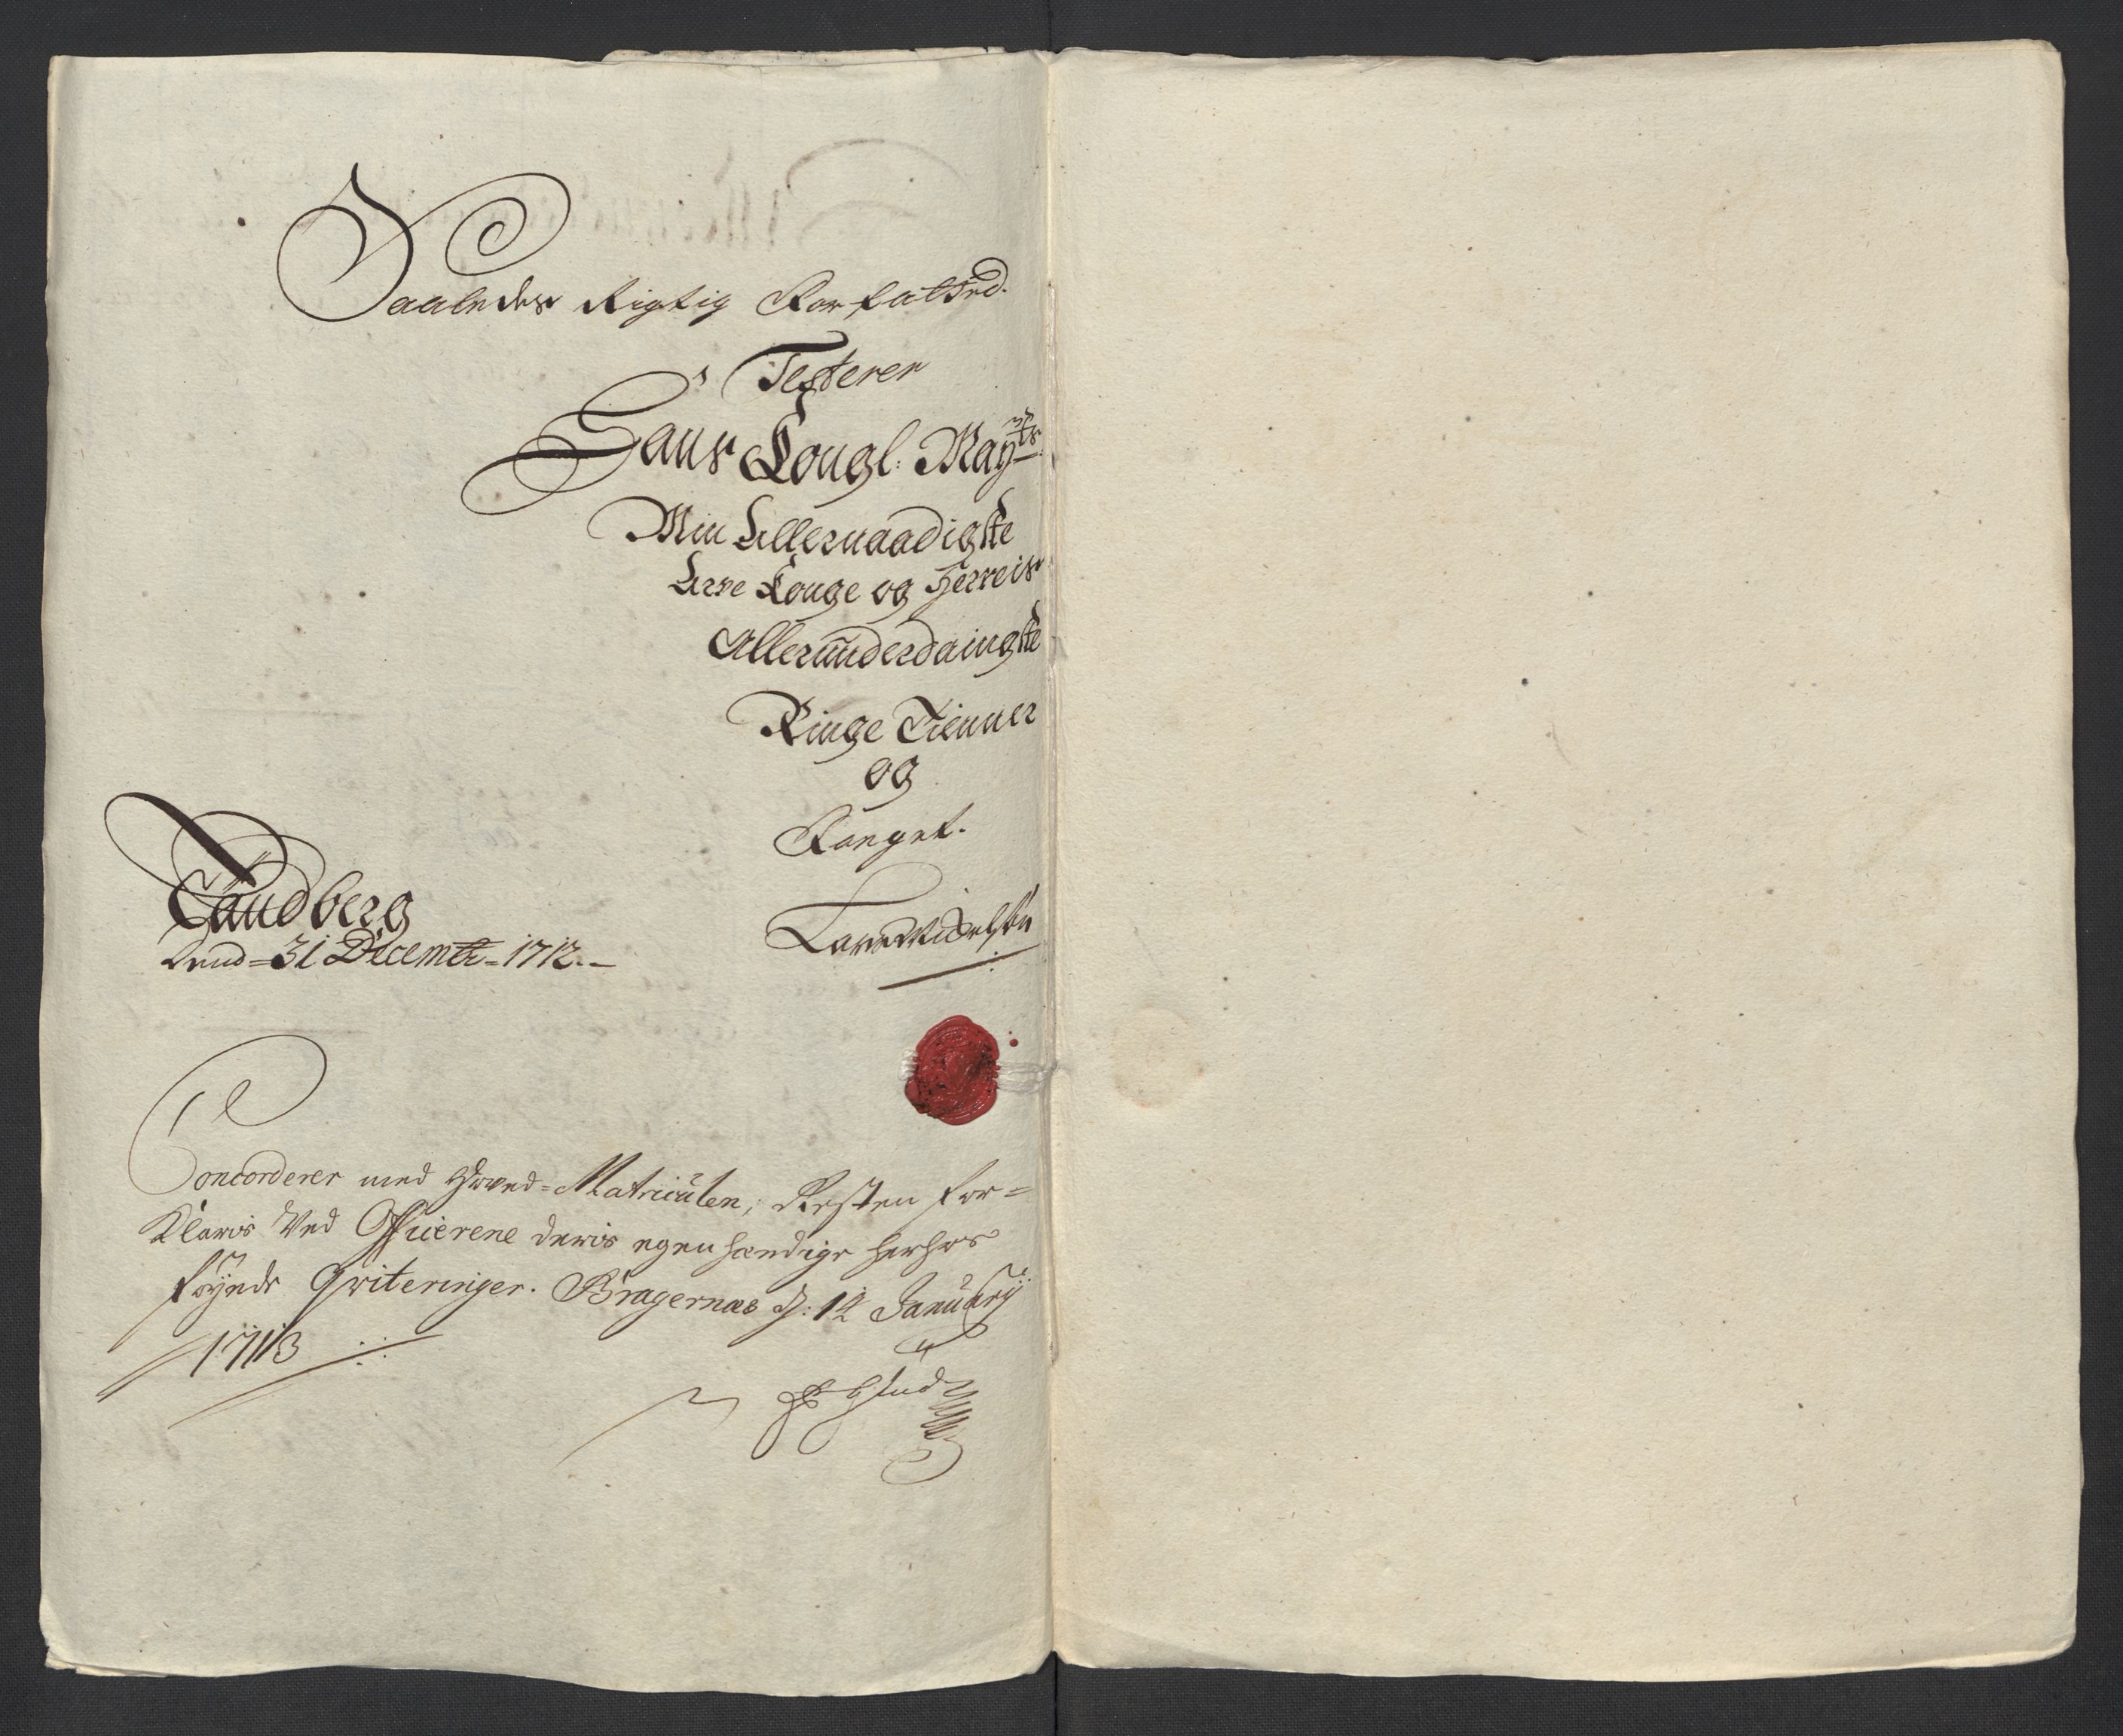 Saaledes Rigtig Forfatted.
Testerer
Hans Kongl: May:ts
Min Allernaadigste
Arve Konge og Herreis
Allerunderdaingste
Ringe Tienner
og
Foeget.
Sandberg
Dend = 31 Decembr = 1712. —
Concorderer med Hoved = Matriculen, Resten for =
Klaris ved Officerene deris egenhændige herhos
føyede Qviteringer. Bragernæs d: 14 January
1713